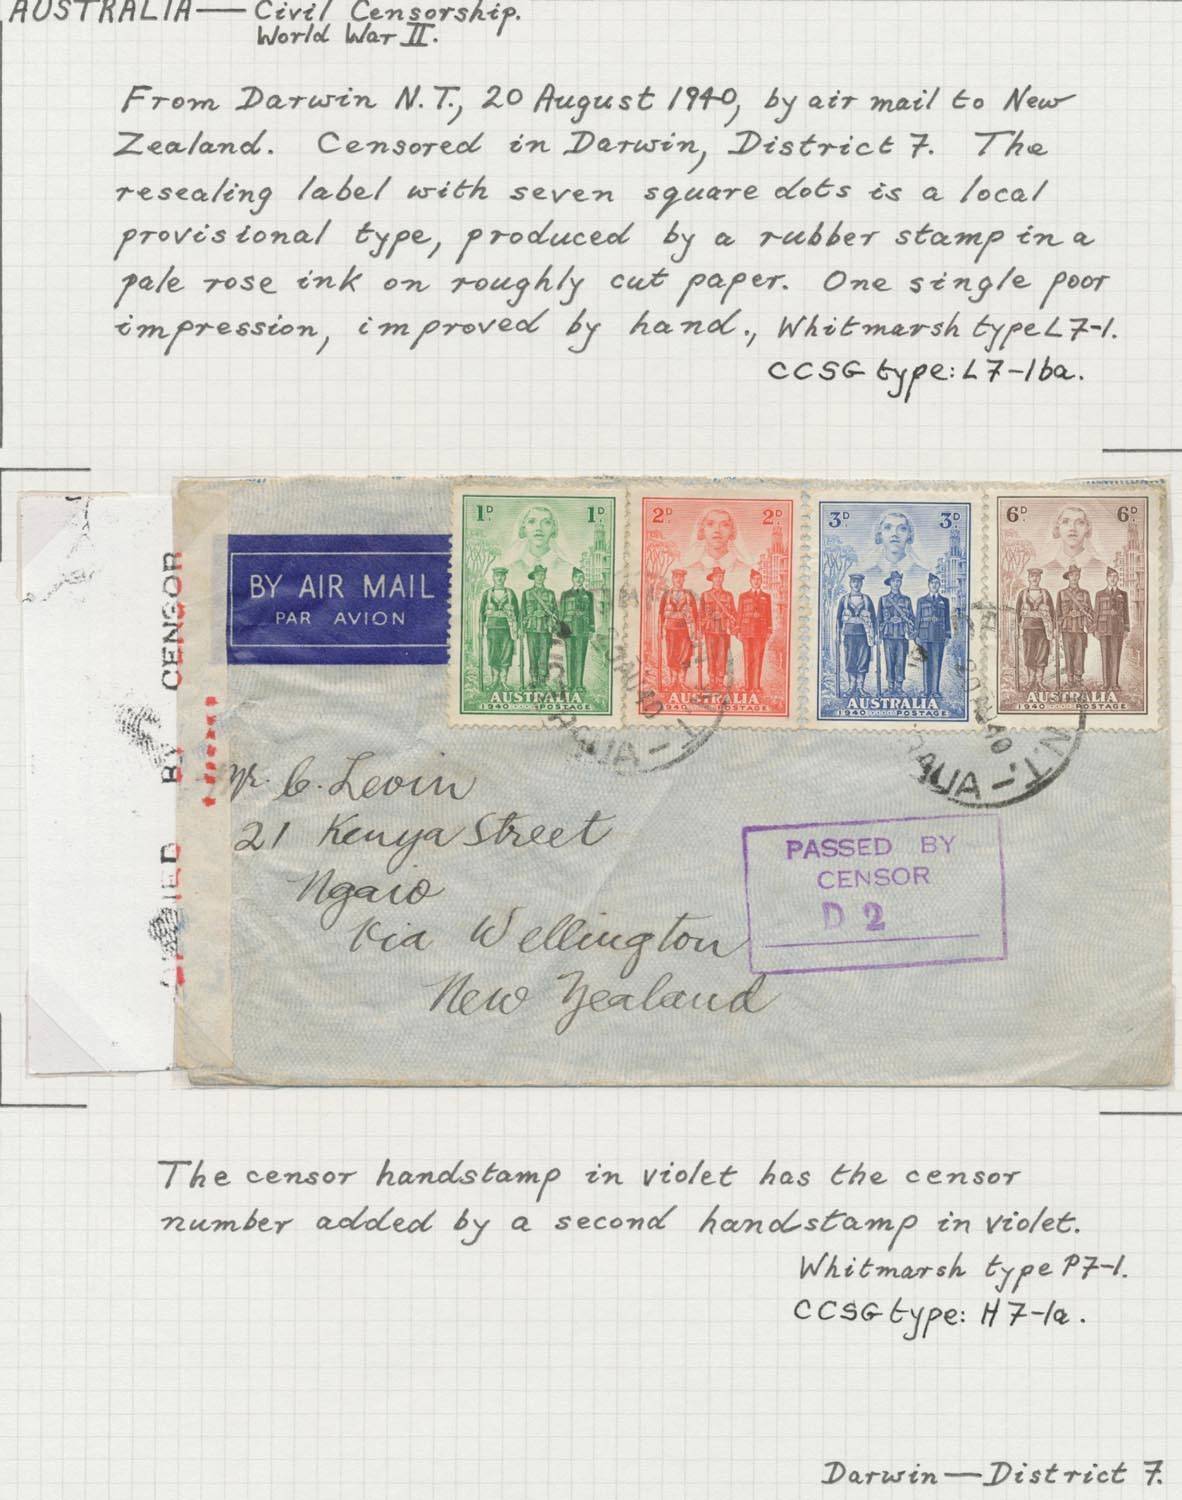 AUSTRALIA — Civil Censorship.
World War II.
From Darwin N.T., 20 August 1940, by air mail to New
Zealand. Censored in Darwin, District 7. The
resealing label with seven square dots is a local
provisional type, produced by a rubber stamp in a
pale rose ink on roughly cut paper. One single poor
impression, improved by hand., Whitmarsh type L7-1.
CCSG type: L7-1ba.
BY CENSOR
BY AIR MAIL
PAR AVION
1D 1D
AUSTRALIA
1940 POSTAGE
2D 2D
AUSTRALIA
1940 POSTAGE
3D 3D
AUSTRALIA
1940 POSTAGE
6D 6D
AUSTRALIA
1940 POSTAGE
Mr. C. Levin
21 Kenya Street
Ngaio
Via Wellington
New Zealand
PASSED BY
CENSOR
D 2
The censor handstamp in violet has the censor
number added by a second handstamp in violet.
Whitmarsh type P7-1.
CCSG type: H7-1a.
Darwin — District 7.